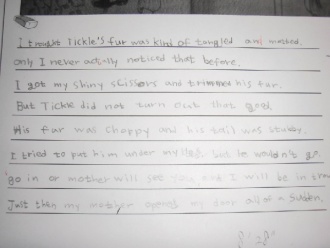 I thought Tickle's fur was kind of tangled and matted.
only I never actually noticed that before.
I got my shiny scissors and trimmed his fur.
But Tickle did not turn out that good.
His fur was choppy and his tail was stubby.
I tried to put him under my bed but he wouldn't go.
go in or mother will see you and I will be in trou
Just then my mother opened my door all of a sudden.